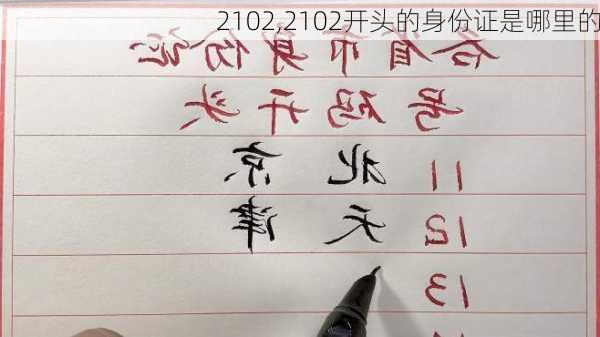 2102,2102开头的身份证是哪里的
各省市身份证
号码开头
11 北京
12 天津
13